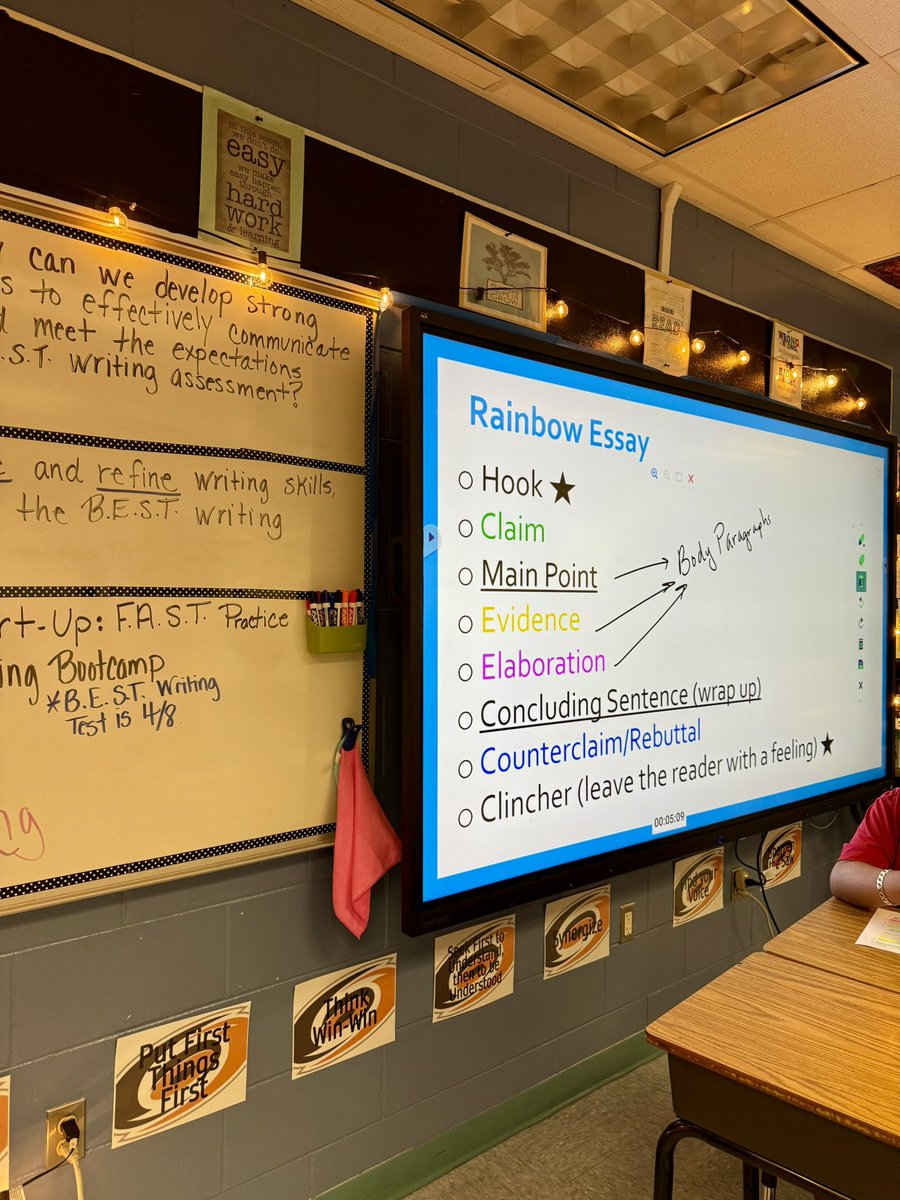 in this room
we don't do
easy
we make
easy happen
through
hard
work
& learning
can we develop strong
to effectively communicate
meet the expectations
writing assessment?
and refine writing skills,
the B.E.S.T. writing
-Up: F.A.S.T. Practice
Bootcamp
*B.E.S.T. Writing
Test is 4/8
READ
Rainbow Essay
Hook ★
Claim
Main Point
Body Paragraphs
Evidence
Elaboration
Concluding Sentence (wrap up)
Counterclaim/Rebuttal
Clincher (leave the reader with a feeling) ★
00:05:09
Put First
Things
First
Think
Win-Win
Seek First to
Understand,
then to be
Understood
Synergize